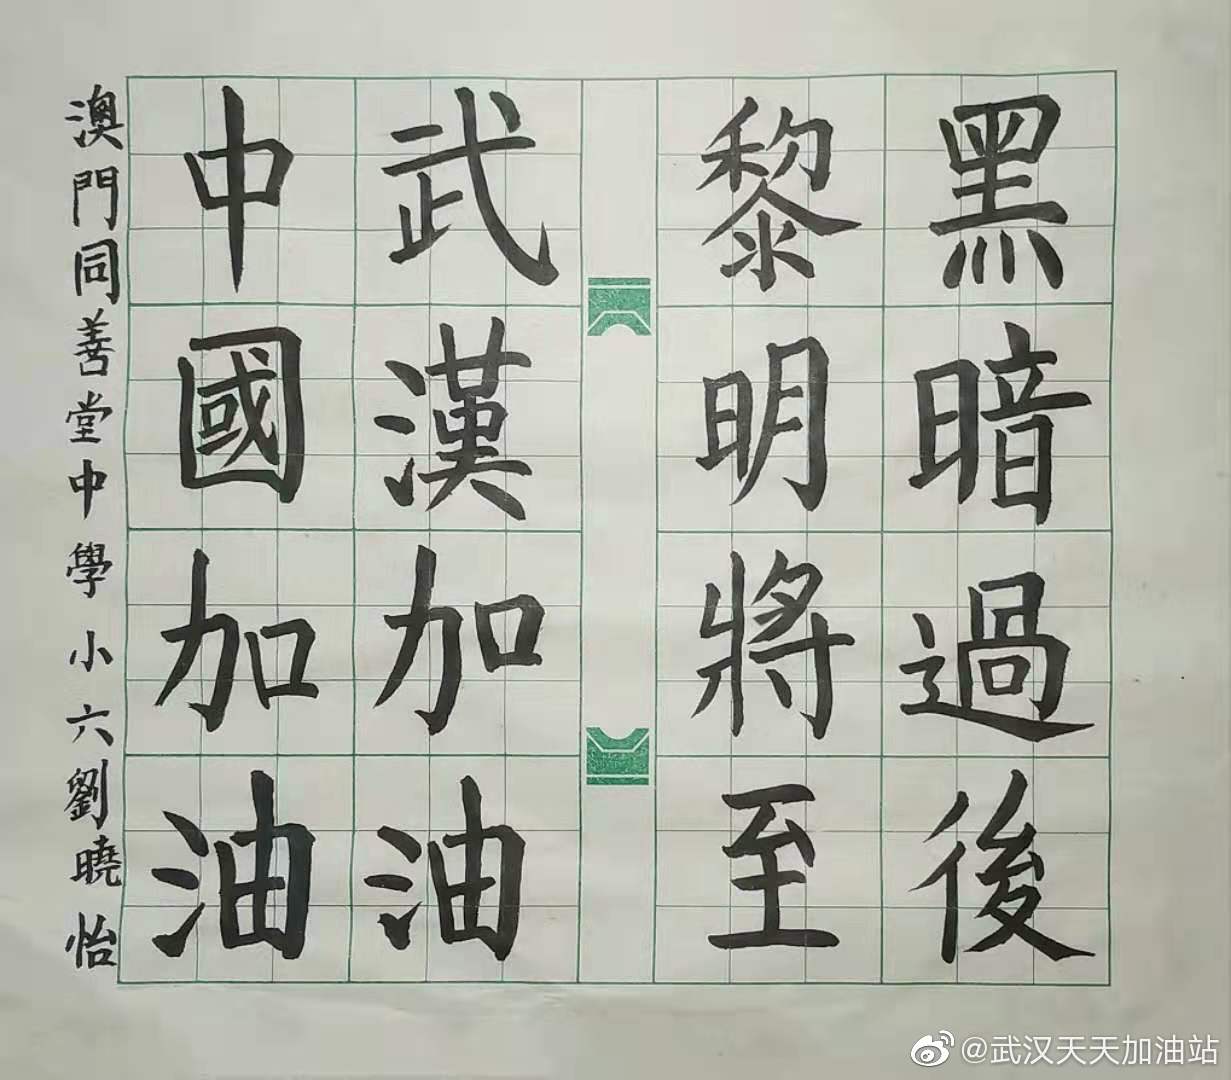 黑暗過後
黎明將至
武漢加油
中國加油
澳門同善堂中學小六劉曉怡
@武汉天天加油站